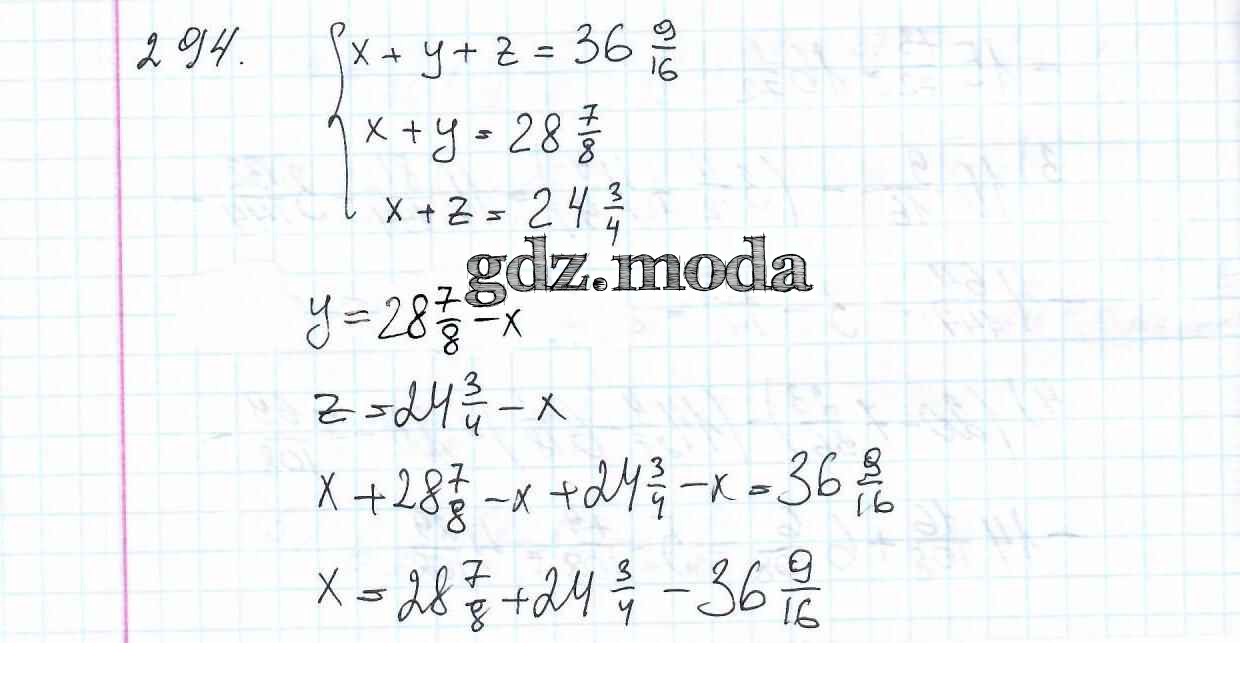 294. x + y + z = 36 9/16
x + y = 28 7/8
x + z = 24 3/4
gdz.moda
y = 28 7/8 - x
z = 24 3/4 - x
x + 28 7/8 - x + 24 3/4 - x = 36 9/16
x = 28 7/8 + 24 3/4 - 36 9/16